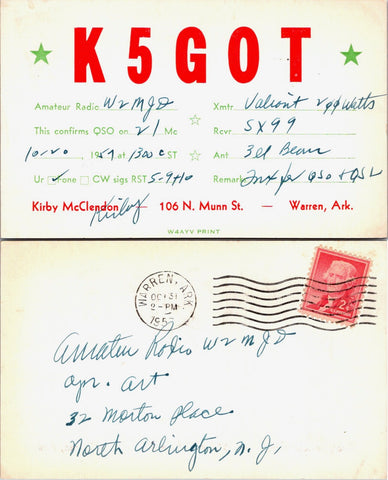 K5GOT
Amateur Radio W2MJD Xmtr Valiant 200 Watts
This confirms QSO on 21 Mc Rcvr SX99
10-20 1957 at 1300 CST Ant 3 el Beam
Ur Fone CW sigs RST 5-9+10 Remarks Tnx for QSO + QSL
Kirby McClendon — 106 N. Munn St. — Warren, Ark.
Kirby
W4AYV PRINT
WARREN, ARK.
OCT 31
2-PM
1957
2¢
Amateur Radio W2MJD
Opr. Art
32 Morton Place
North Arlington, N. J.